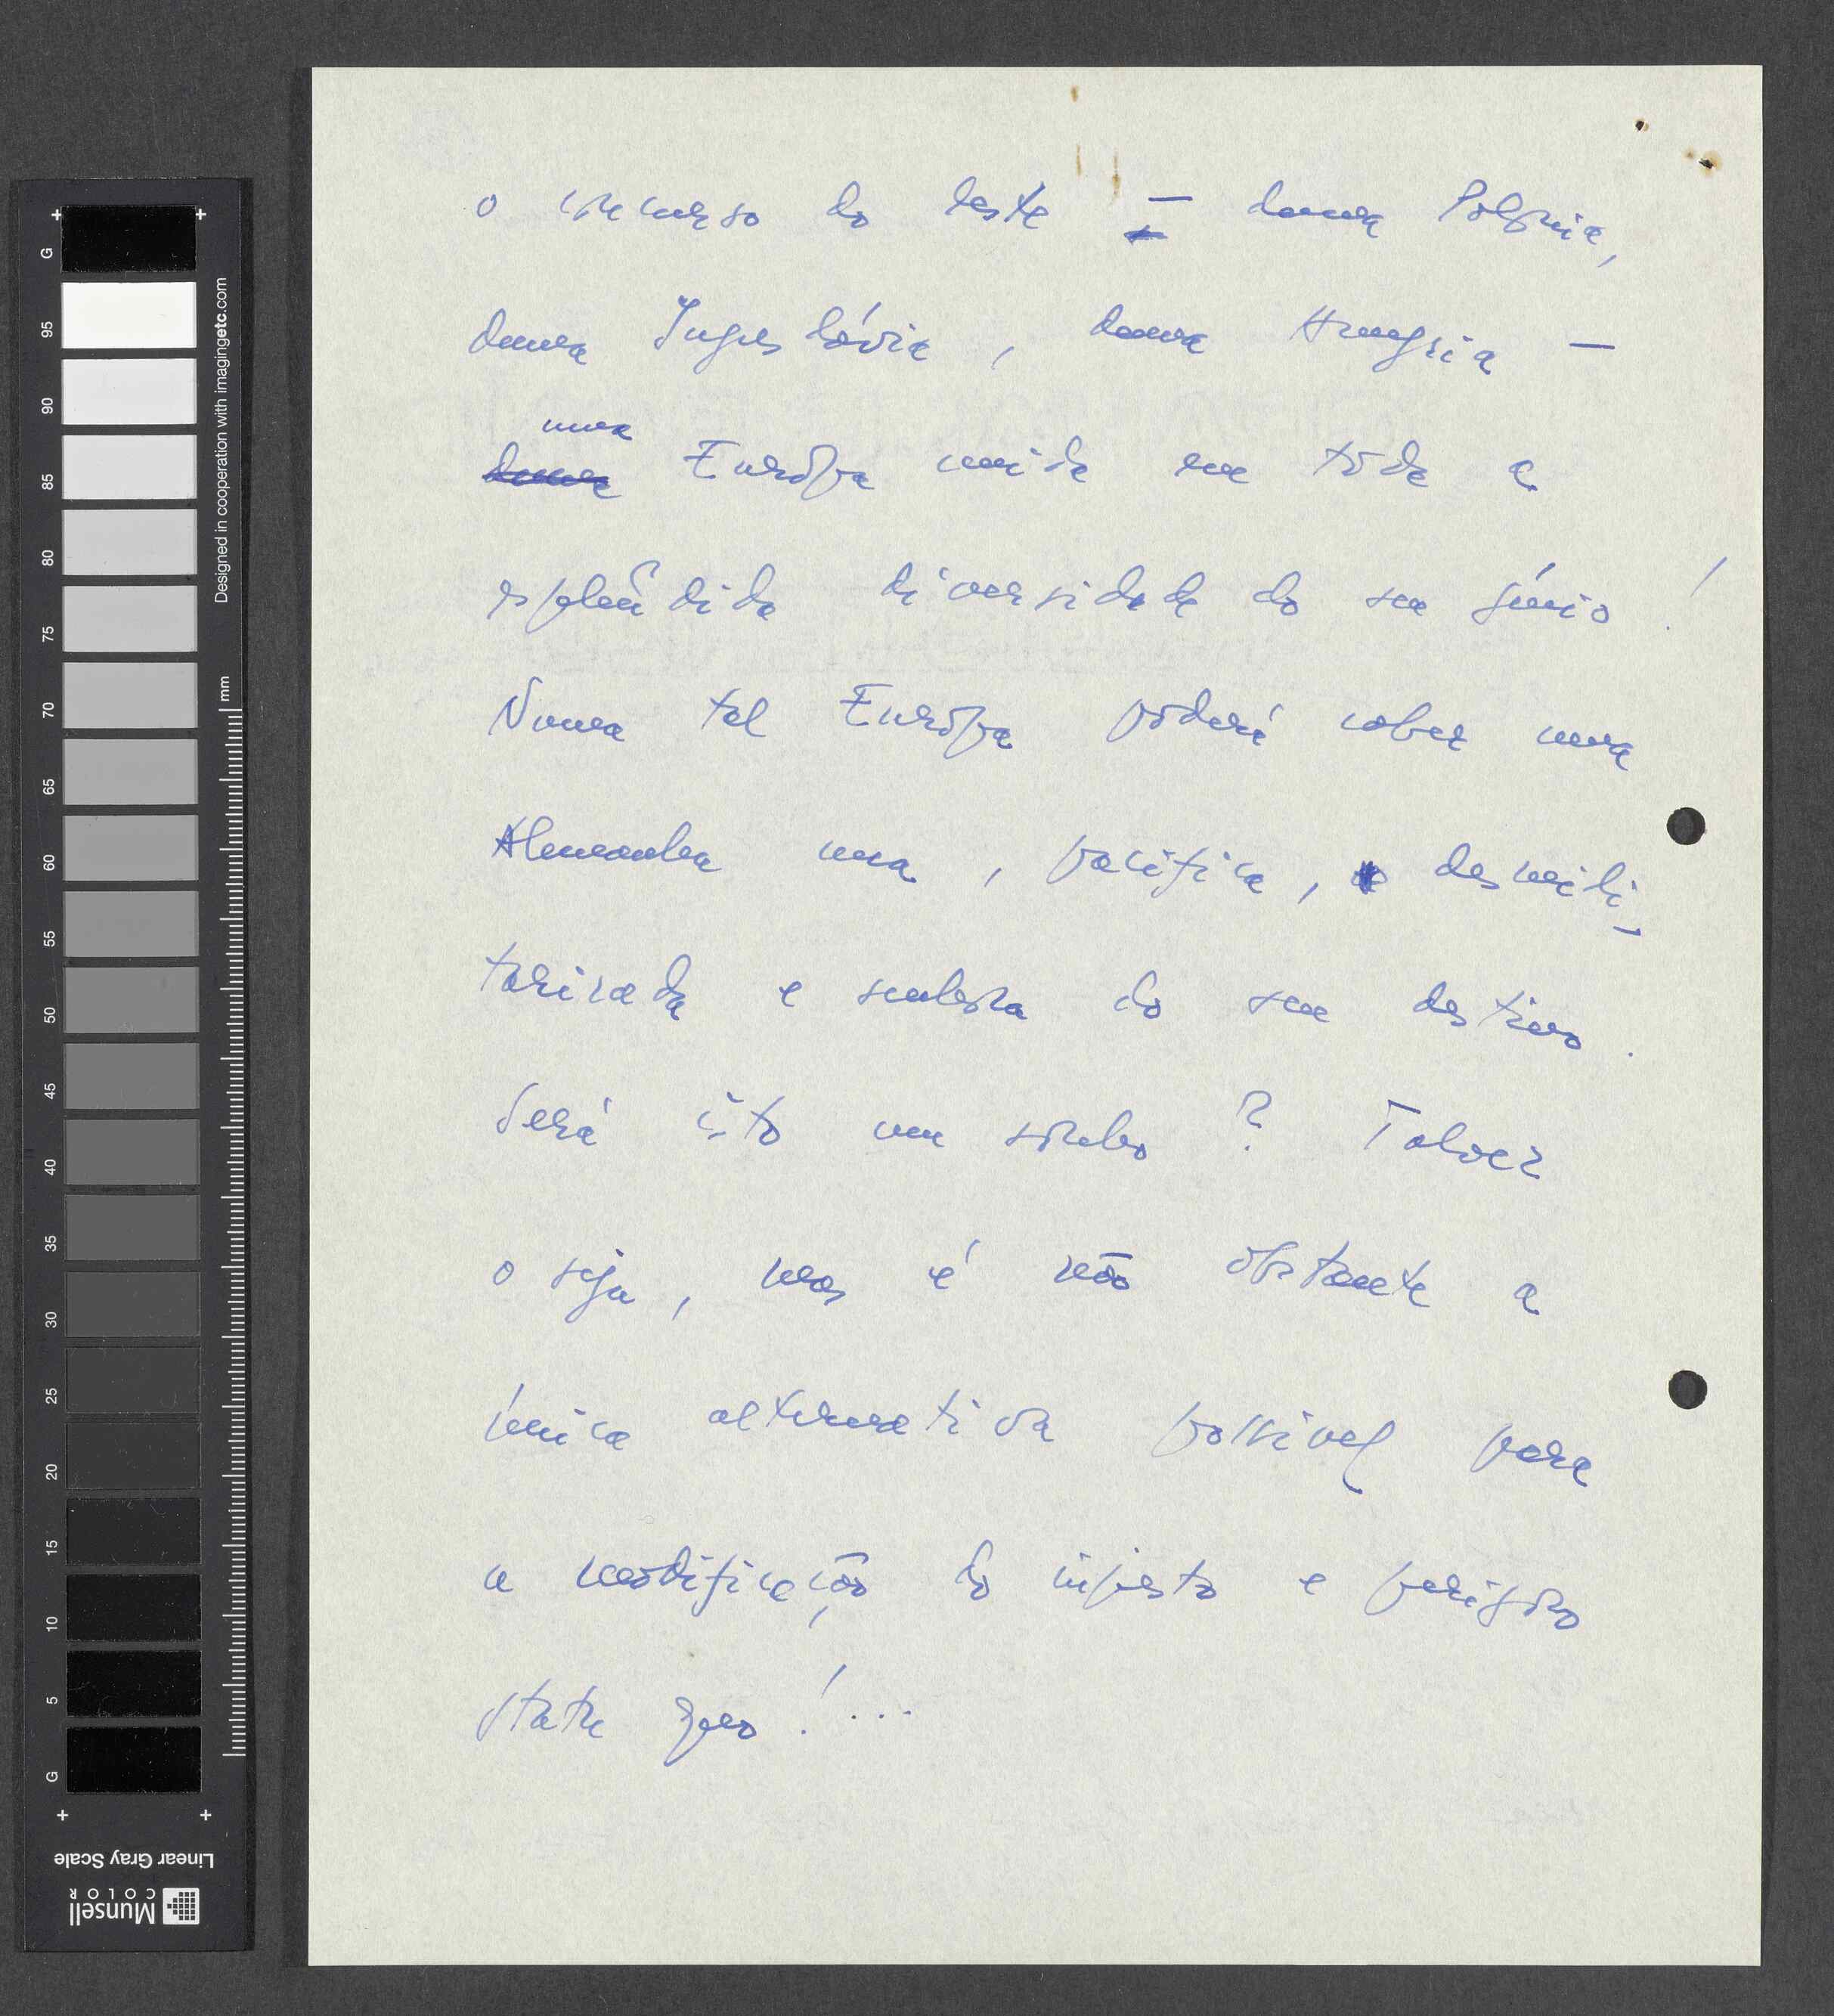 o concurso do leste – duma Polónia,
duma Jugoslávia, duma Hungria –
uma
duma Európa unida em tôda a
esplêndida diversidade do seu génio!
Numa tal Európa poderá caber uma
Alemanha una, pacífica, desmili-
tarizada e senhora do seu destino.
Será isto um sonho? Talvez
o seja, mas é não obstante a
única alternativa possivel para
a modificação do injusto e perigoso
statu quo!...
G
95
90
85
80
75
70
65
60
55
50
45
40
35
30
25
20
15
10
5
G
mm
Designed in cooperation with imagingetc.com
Linear Gray Scale
Munsell
COLOR